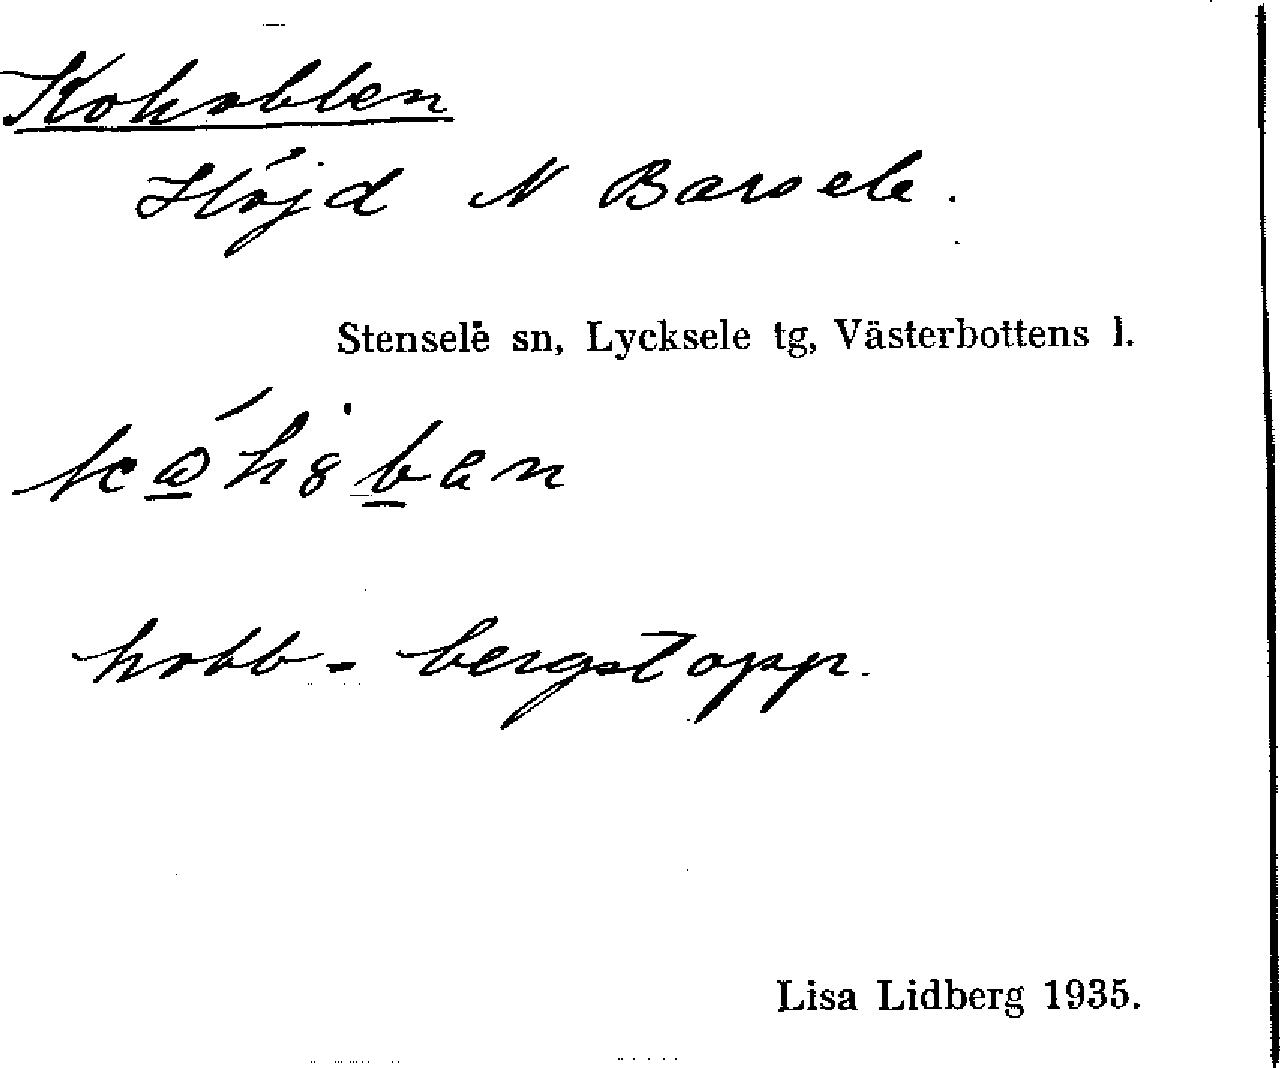 Kohobben
Höjd N Barsele.
Stensele sn, Lycksele tg, Västerbottens l.
hobb - bergstopp.
Lisa Lidberg 1935.